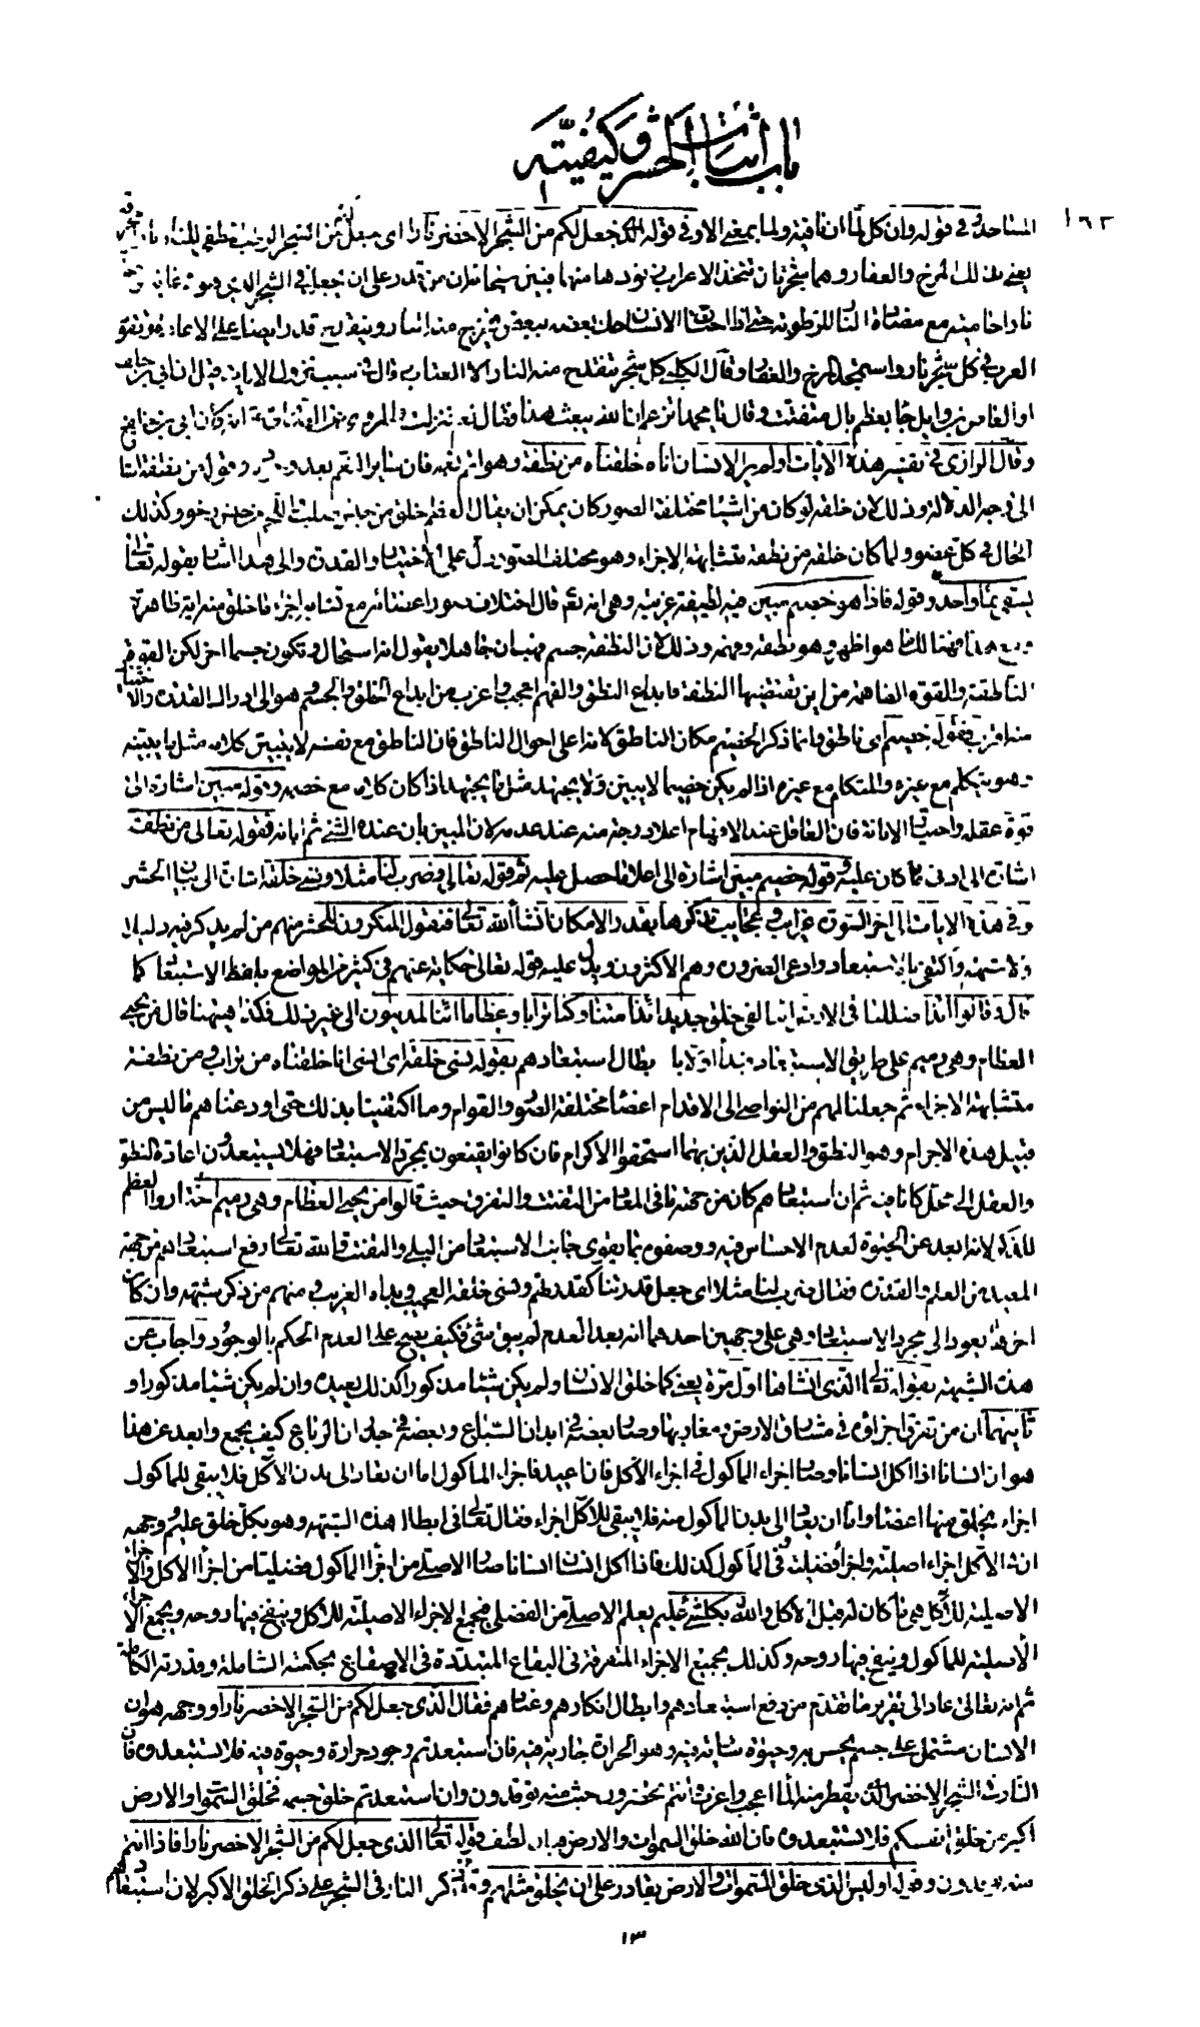 باب اثبات الحشر وكيفيته
١٦٢
في قوله وان كل لما ان نافية ولما بمعنى الا وفي قوله الذى جعل لكم من الشجر الاخضر نارا اى جعل لكم من الشجر الرطب
يعنى بذلك المرخ والعفار وهما شجرتان تتخذ الاعراب زنودها منهما فبين سبحانه ان من قدر على ان يجعل في الشجر الذى هو في غاية
نارا حامية مع مضادة النار للرطوبة حتى اذا احتاج الانسان حك بعضه ببعض فتخرج منه النار وينقدح قدر ايضا على الاعادة
العرب في كل شجر نار واستمجد المرخ والعفار وقال الكلبي كل شجر تنقدح منه النار الا العناب وقال في سبب نزول الايات قيل ان ابي بن خلف
او العاص بن وايل جاء بعظم بال متفتت وقال يا محمد اتزعم ان الله يبعث هذا فقال نعم فنزلت
وقال الرازى في تفسير هذه الايات اولم ير الانسان انا خلقناه من نطفة وهو اتم نعمه فان ساير النعم بعد وجوده وقوله من نطفة اشارة
الى وجه الدلالة وذلك لان خلقه لو كان من اشياء مختلفة الصور كان يمكن ان يقال العظم خلق من جنس صلب واللحم من جنس رخو وكذلك
الحال في كل عضو ولما كان خلقه من نطفة متشابهة الاجزاء وهو مختلف الصور دل على الاختيار والقدرة والى هذا اشار بقوله تعالى
يسقى بماء واحد وقوله فاذا هو خصيم مبين فيه لطيفة غريبة وهى انه تعالى قال اختلاف صور اعضائه مع تشابه اجزاء ما خلق منه اية ظاهرة
ومع هذا فهنالك ما هو اظهر وهو نطقه وفهمه وذلك لان النطفة جسم فهب ان جاهلا يقول انه استحال وتكون جسما اخر لكن القوة
الناطقة والقوة الفاهمة من اين تقتضيها النطفة فابداع النطق والفهم اعجب واغرب من ابداع الخلق والجسم وهو الى ادراك القدرة والاختيار
منه اقرب فقوله خصيم اى ناطق وانما ذكر الخصيم مكان الناطق لانه اعلى احوال الناطق فان الناطق مع نفسه لا يبين كلامه مثل ما يبينه
وهو يتكلم مع غيره والمتكلم مع غيره اذا لم يكن خصيما لا يبين ولا يجتهد مثل ما يجتهد اذا كان كلامه مع خصمه وقوله مبين اشارة الى
قوة عقله واختيار الابانة فان العاقل عند الافهام اعلى درجة منه عند عدمه لان المبين بان عنده الشئ ثم ابانه فقوله تعالى من نطفة
اشارة الى ادنى ما كان عليه وقوله خصيم مبين اشارة الى اعلى ما حصل عليه ثم قوله تعالى وضرب لنا مثلا ونسى خلقه اشارة الى بيان الحشر
وفي هذه الايات الى اخر السورة غرايب وعجايب نذكرها بقدر الامكان انشاء الله تعالى فنقول المنكرون للحشر منهم من لم يذكر فيه دليلا
ولا شبهة واكتفى بالاستبعاد وادعى الضرورة وهم الاكثرون ويدل عليه قوله تعالى حكاية عنهم في كثير من المواضع بلفظ الاستبعاد كما
قال وقالوا أئذا ضللنا في الارض ائنا لفى خلق جديد ائذا متنا وكنا ترابا وعظاما ائنا لمدينون الى غير ذلك فكذا هيهنا قال من يحيى
العظام وهى رميم على طريق الاستبعاد فبدأ اولا بابطال استبعادهم بقوله ونسى خلقه اى انسى انا خلقناه من تراب ومن نطفة
متشابهة الاجزاء ثم جعلنا لهم من النواصى الى الاقدام اعضاء مختلفة الصور والقوام وما اكتفينا بذلك حتى اودعناهم ما ليس من
قبيل هذه الاجرام وهو النطق والعقل الذين بهما استحقوا الاكرام فان كانوا يقنعون بمجرد الاستبعاد فهلا يستبعدون اعادة النطق
والعقل الى محل كانا فيه ثم ان استبعادهم كان من جهة ما في المعاد من التفتت والتفرق حيث قالوا من يحيى العظام وهى رميم اختاروا العظم
للذكر لانه ابعد عن الحيوة لعدم الاحساس فيه ووصفوه بما يقوى جانب الاستبعاد من البلى والتفتت والله تعالى دفع استبعادهم من جهة
المعيد من العلم والقدرة فقال ضرب لنا مثلا اى جعل قدرتنا كقدرتهم ونسى خلقه العجيب وبدأه الغريب ومنهم من ذكر شبهة وان كان
اخرها يعود الى مجرد الاستبعاد وهى على وجهين احدهما انه بعد العدم لم يبق شئ فكيف يصح على العدم الحكم بالوجود واجاب عن
هذه الشبهة بقوله تعالى الذى انشأها اول مرة يعنى كما خلق الانسان ولم يكن شيئا مذكورا كذلك يعيده وان لم يكن شيئا مذكورا و
ثانيهما ان من تفرق اجزاؤه في مشارق الارض ومغاربها وصار بعضه في ابدان السباع وبعضه في جدران الرباع كيف يجمع وابعد من هذا
هو ان انسانا اذا اكل انسانا وصار اجزاء الماكول في اجزاء الآكل فان اعيد فاجزاء الماكول اما ان تعاد الى بدن الآكل فلا يبقى للماكول
اجزاء يخلق منها اعضاؤه واما ان يعاد الى بدن الماكول منه فلا يبقى للآكل اجزاء فقال تعالى في ابطال هذه الشبهة وهو بكل خلق عليم ووجهه
ان في الآكل اجزاء اصلية واجزاء فضلية وفي الماكول كذلك فاذا اكل انسان انسانا صار الاصلى من اجزاء الماكول فضليا من اجزاء الآكل والاجزاء
الاصلية للآكل هى ما كان له قبل الاكل والله بكل شئ عليم يعلم الاصلى من الفضلى فيجمع الاجزاء الاصلية للآكل وينفخ فيها روحه ويجمع الاجزاء
الاصلية للماكول وينفخ فيها روحه وكذلك يجمع الاجزاء المتفرقة في البقاع المتبددة في الاصقاع بحكمته الشاملة وقدرته الكاملة
ثم انه تعالى عاد الى تقرير ما تقدم من دفع استبعادهم وابطال انكارهم وعنادهم فقال الذى جعل لكم من الشجر الاخضر نارا ووجهه هو ان
الانسان مشتمل على جسم يحس به وحيوة سارية فيه وهو كحرارة جارية فيه فان استبعدتم وجود حرارة وحيوة فيه فلا تستبعدوه فان
النار في الشجر الاخضر الذى يقطر منه الماء اعجب واغرب وانتم تحضرون حيث منه توقدون وان استبعدتم خلق جسمه فخلق السموات والارض
اكبر من خلق انفسكم فلا تستبعدوه فان الله خلق السموات والارض فبان لطف قوله تعالى الذى جعل لكم من الشجر الاخضر نارا فاذا انتم
منه توقدون وقوله اوليس الذى خلق السموات والارض بقادر على ان يخلق مثلهم وقدم ذكر النار في الشجر على ذكر الخلق الاكبر لان استبعادهم
١٣